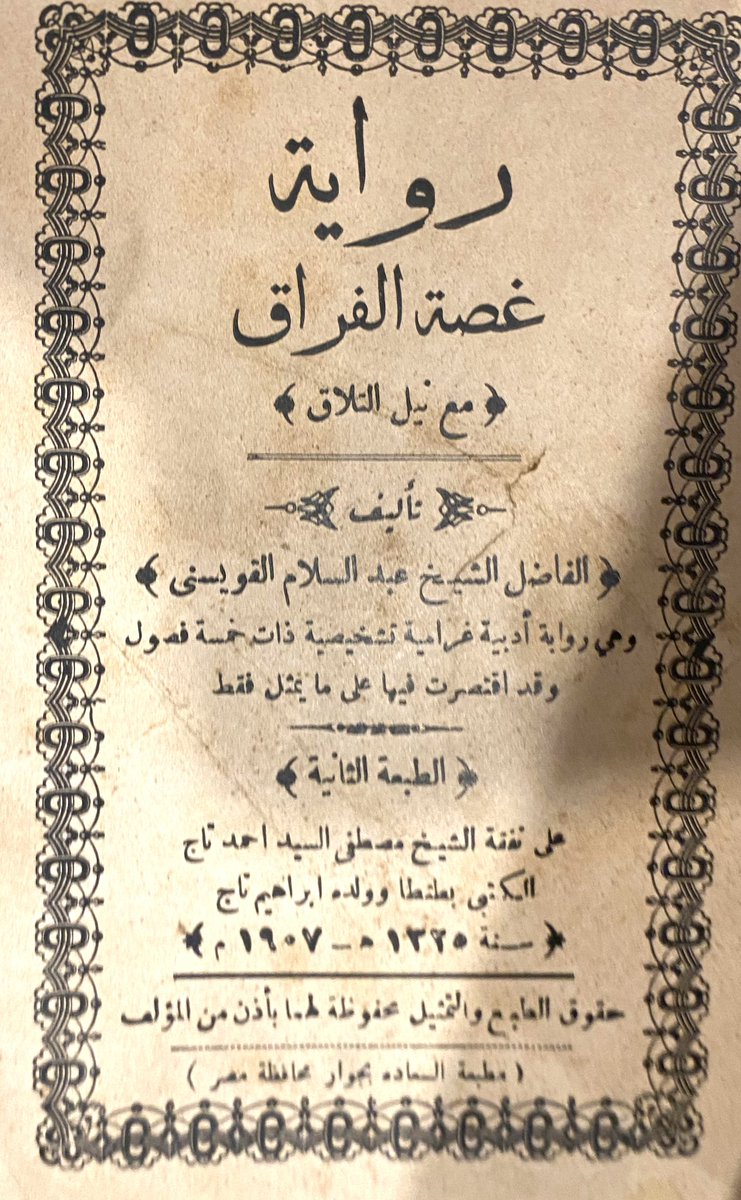 رواية
غصة الفراق
﴿ مع نيل التلاق ﴾
تأليف
﴿ الفاضل الشيخ عبد السلام القويسنى ﴾
وهي رواية أدبية غرامية تشخيصية ذات خمسة فصول
وقد اقتصرت فيها على ما يمثل فقط
﴿ الطبعة الثانية ﴾
على نفقة الشيخ مصطفى السيد احمد تاج
الكتبى بطنطا وولده ابراهيم تاج
﴿ سنة ١٣٢٥ هـ – ١٩٠٧ م ﴾
حقوق الطبع والتمثيل محفوظة لهما بأذن من المؤلف
( مطبعة السعاده بجوار محافظة مصر )